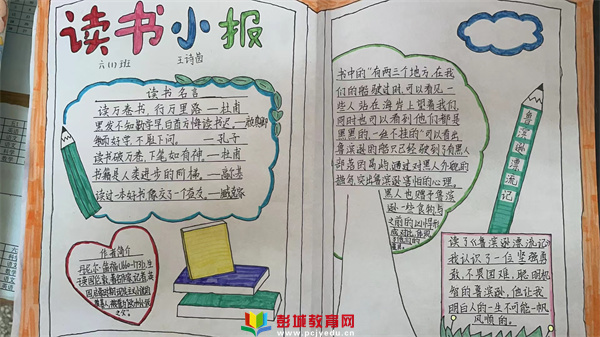 读书小报
六(1)班
王诗茵
读书名言
读万卷书,行万里路——杜甫
黑发不知勤学早,白首方悔读书迟。——颜真卿
敏而好学,不耻下问。——孔子
读书破万卷,下笔如有神。——杜甫
书籍是人类进步的阶梯。——高尔基
读过一本好书,像交了一个益友。——臧克家
作者简介
书中的“有两三个地方,在我
们的船驶过时,可以看见一
些人站在海岸上望着我们,
同时也可以看到他们都是
黑黑的,一丝不挂的”可以看出
鲁滨逊的船只已经驶到了有黑人
部落的岛屿,通过对黑人外貌的
描写,突出鲁滨逊害怕的心理。
黑人也赠予鲁滨
逊一些食物与
之前的凶悍形
成对比
鲁滨逊漂流记
读了《鲁滨逊漂流记》
我认识了一位坚强勇
敢,不畏困难,聪明机
智的鲁滨逊,他让我
明白人的一生不可能一帆
风顺的。
彭城教育网
www.pcjyedu.cn